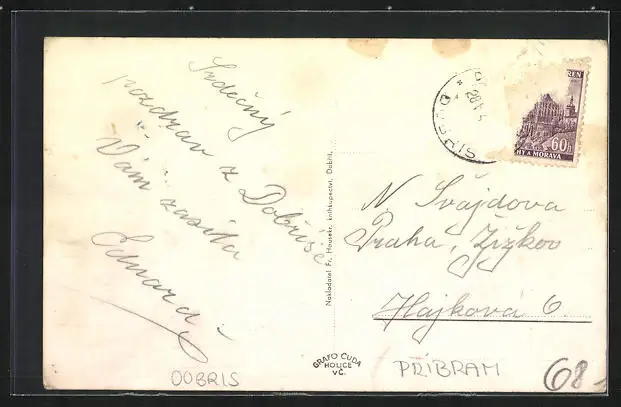 Srdečný
pozdrav z Dobříše
Vám zasílá
Eduard
Nakladatel Fr. Housekr, knihkupectví, Dobříš.
REN
60h
MY A MORAVA
N Švájdova
Praha, Žižkov
Hájkova 6.
GRAFO ČUDA
HOLICE
VČ.
DOBRIS
PŘÍBRAM
68-